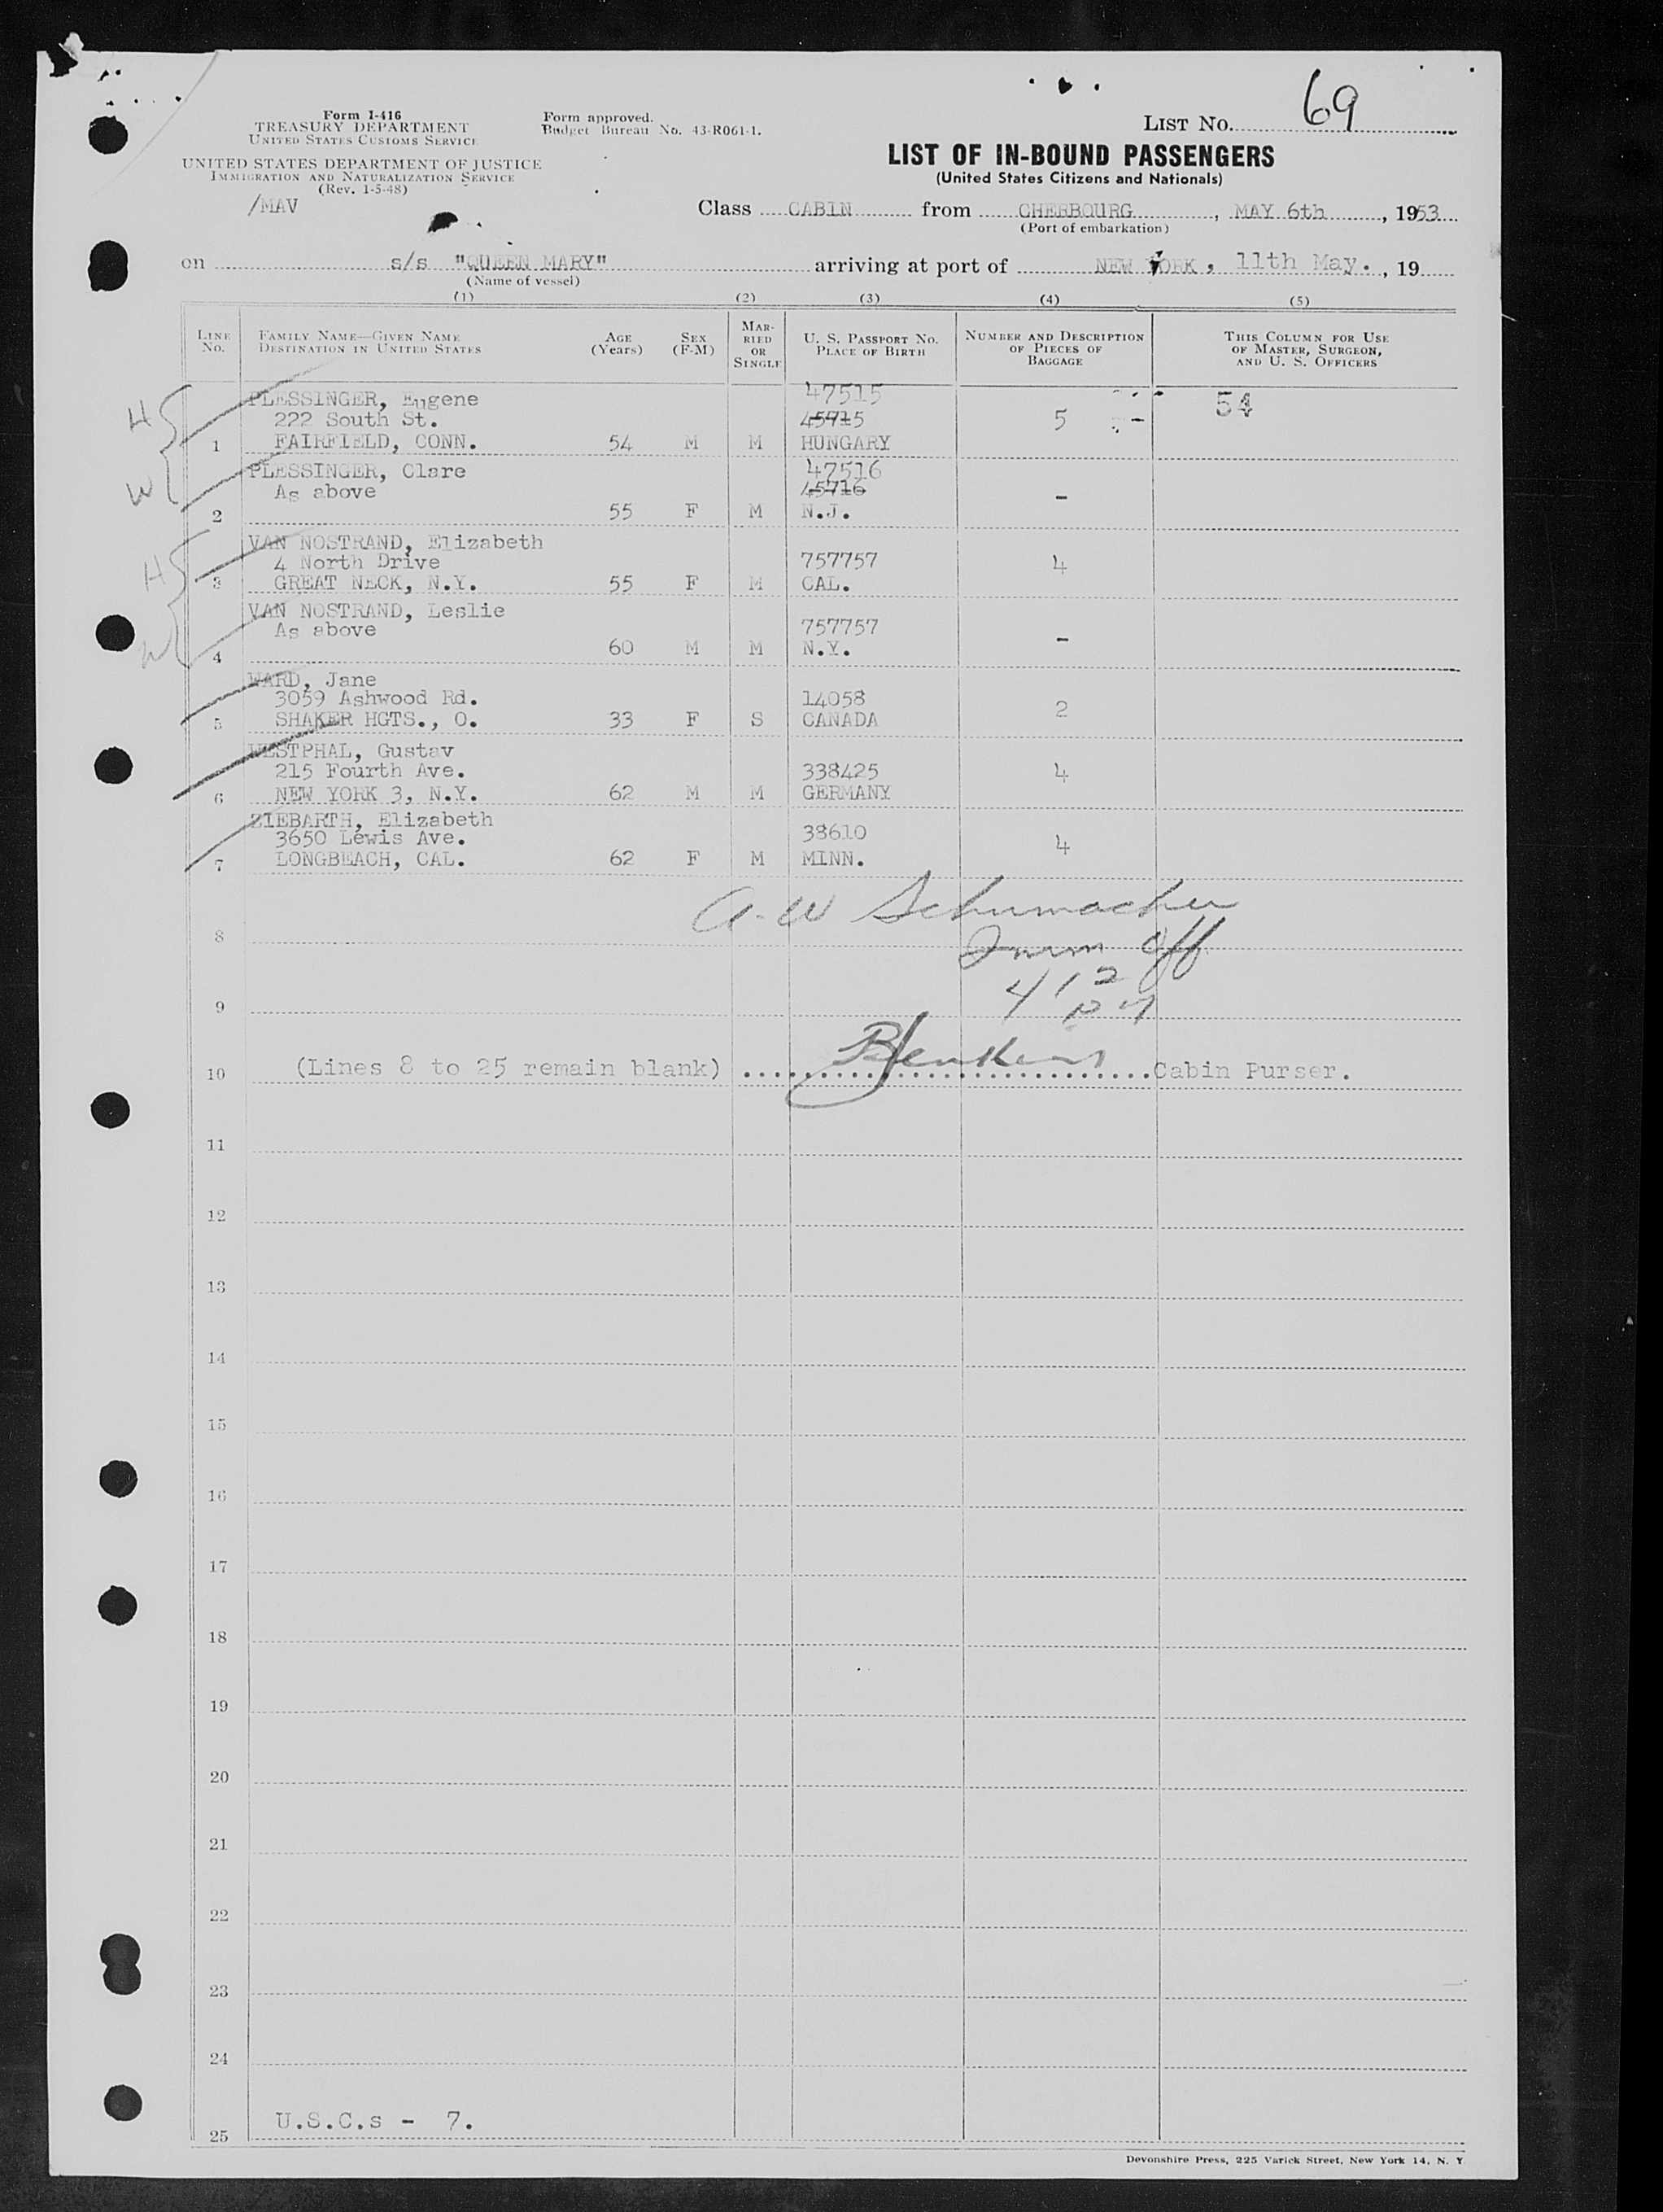 69
Form I-416
TREASURY DEPARTMENT
UNITED STATES CUSTOMS SERVICE
UNITED STATES DEPARTMENT OF JUSTICE
IMMIGRATION AND NATURALIZATION SERVICE
(Rev. 1-5-48)
/MAV
Form approved.
Budget Bureau No. 43-R061-1.
LIST No.
LIST OF IN-BOUND PASSENGERS
(United States Citizens and Nationals)
Class CABIN from CHERBOURG, MAY 6th, 1953
(Port of embarkation)
on s/s "QUEEN MARY" arriving at port of NEW YORK, 11th May., 19
(Name of vessel)
(1) (2) (3) (4) (5)
LINE No.
FAMILY NAME—GIVEN NAME
DESTINATION IN UNITED STATES
AGE (Years)
SEX (F-M)
MARRIED OR SINGLE
U. S. PASSPORT No.
PLACE OF BIRTH
NUMBER AND DESCRIPTION OF PIECES OF BAGGAGE
THIS COLUMN FOR USE OF MASTER, SURGEON, AND U. S. OFFICERS
H
PLESSINGER, Eugene 47515
222 South St. 45715 5 54
1 FAIRFIELD, CONN. 54 M M HUNGARY
W
PLESSINGER, Clare 47516
As above 45716 -
2 55 F M N.J.
H
VAN NOSTRAND, Elizabeth
4 North Drive 757757 4
3 GREAT NECK, N.Y. 55 F M CAL.
W
VAN NOSTRAND, Leslie
As above 757757 -
4 60 M M N.Y.
WARD, Jane
3059 Ashwood Rd. 14058 2
5 SHAKER HGTS., O. 33 F S CANADA
WESTPHAL, Gustav
215 Fourth Ave. 338425 4
6 NEW YORK 3, N.Y. 62 M M GERMANY
ZIEBARTH, Elizabeth
3650 Lewis Ave. 38610 4
7 LONGBEACH, CAL. 62 F M MINN.
A. W Schumacher
8 Imm Off
412
9
10 (Lines 8 to 25 remain blank) Cabin Purser.
11
12
13
14
15
16
17
18
19
20
21
22
23
24
25 U.S.C.s - 7.
Devonshire Press, 225 Varick Street, New York 14, N. Y.